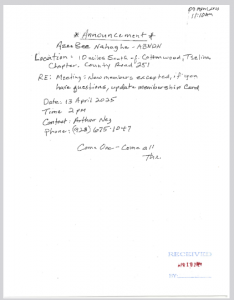 11:10am
* Announcement *
Azee Bee Nahagha - ABNDN
Location: 10 miles South of Cottonwood, Tselina
Chapter. County Road 251
RE: Meeting: New members accepted, if you
have questions, update membership Card
Date: 13 April 2025
Time: 2 pm
Contact: Arthur Ney
Phone: (928) 675-1047
Come One - Come all
RECEIVED
BY: